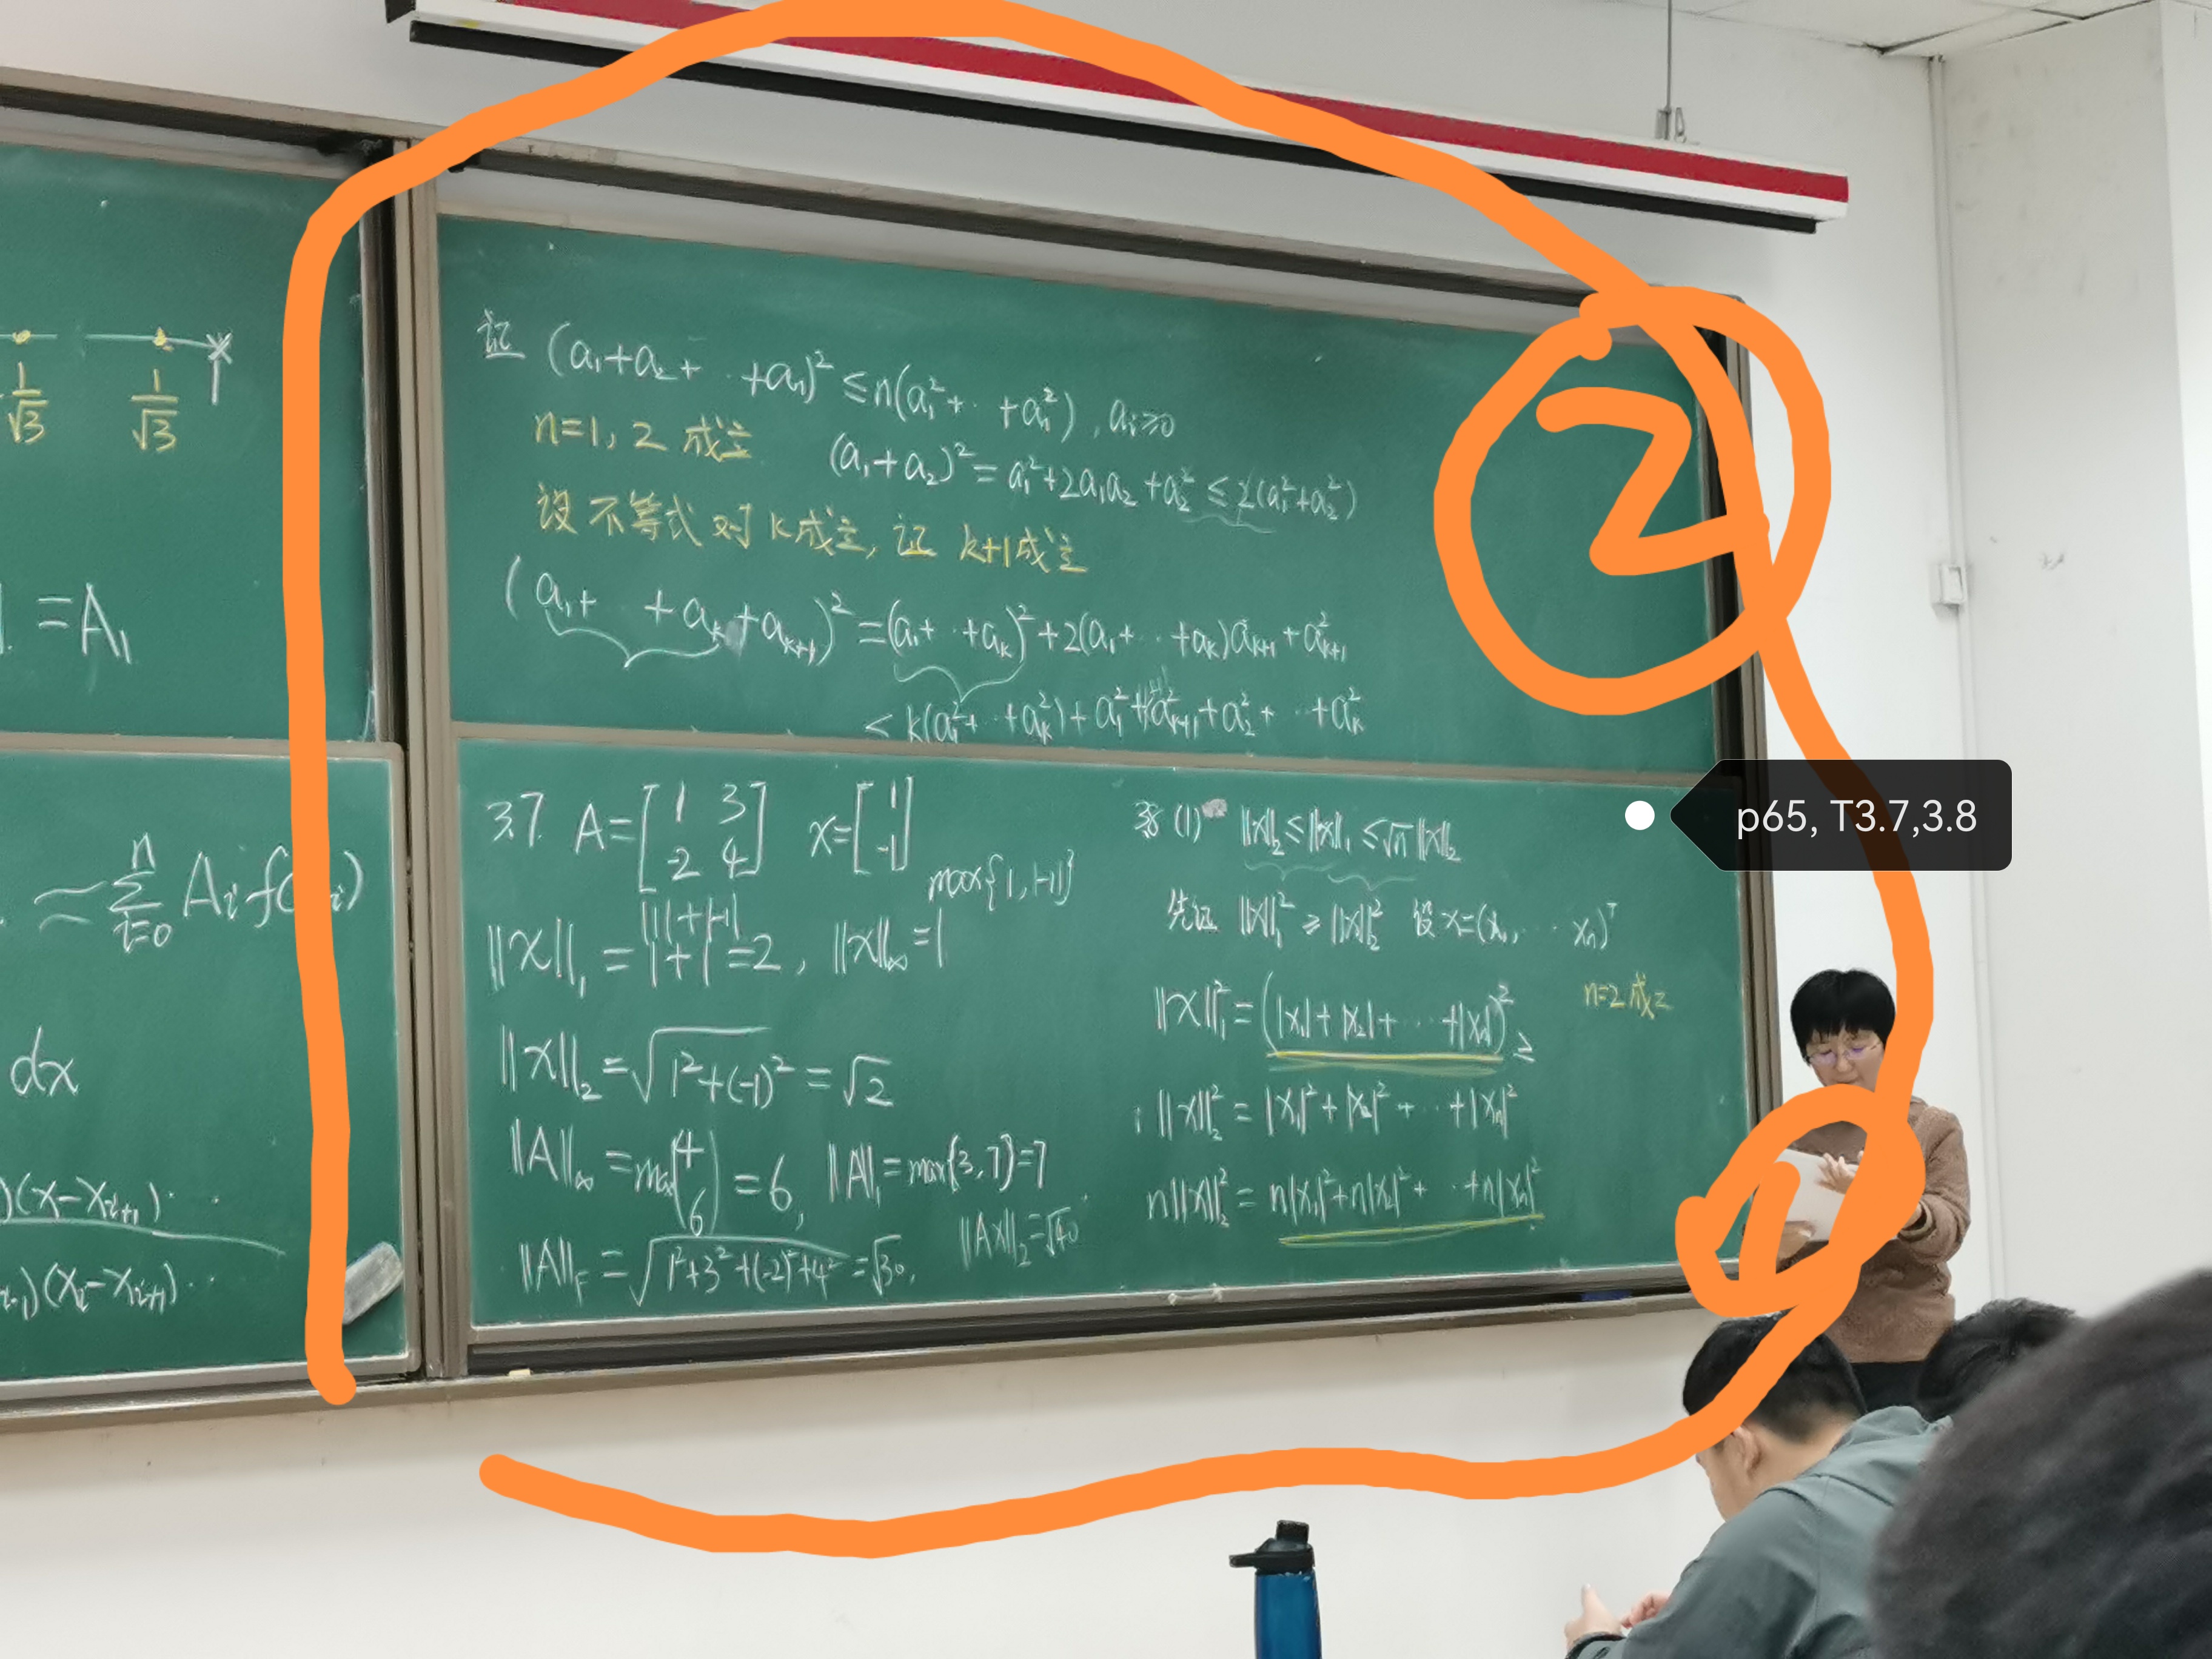 1/√3
1/√3
1
=A₁
≈ ∑ᵢ₌₀ⁿ Aᵢf(xᵢ)
dx
)(x-xᵢ₊₁)··
)(xᵢ-xᵢ₊₁)··
证 (a₁+a₂+ ··· +aₙ)² ≤ n(a₁²+ ·· +aₙ²), aᵢ≥0
n=1, 2 成立 (a₁+a₂)² = a₁²+2a₁a₂+a₂² ≤ 2(a₁²+a₂²)
设不等式对 k成立, 证 k+1成立
(a₁+ ·· +aₖ+aₖ₊₁)² = (a₁+ ·· +aₖ)²+2(a₁+ ·· +aₖ)aₖ₊₁+a²ₖ₊₁
< k(a₁²+ ·· +aₖ²)+a₁²+ a²ₖ₊₁+a₂²+ ·· +aₖ²
②
3.7 A=[1 3
-2 4] x=[1
-1]
max{1, |-1|}
|1|+|-1|
‖x‖₁ = 1+1 =2, ‖x‖∞ =1
‖x‖₂ = √1²+(-1)² = √2
‖A‖∞ = max(4
6) = 6, ‖A‖₁ = max{3, 7}=7
‖A‖F = √1²+3²+(-2)²+4² = √30, ‖Ax‖₂ = √40
3.8 (1) ‖x‖₂ ≤ ‖x‖₁ ≤ √n ‖x‖₂
先证 ‖x‖₁² ≥ ‖x‖₂² 设 x=(x₁, ··· xₙ)ᵀ
‖x‖₁² = (|x₁|+|x₂|+ ··· +|xₙ|)² ≥
n=2成立
‖x‖₂² = |x₁|²+|x₂|²+ ·· +|xₙ|²
n‖x‖₂² = n|x₁|²+n|x₂|²+ ·· +n|xₙ|²
p65, T3.7,3.8
①